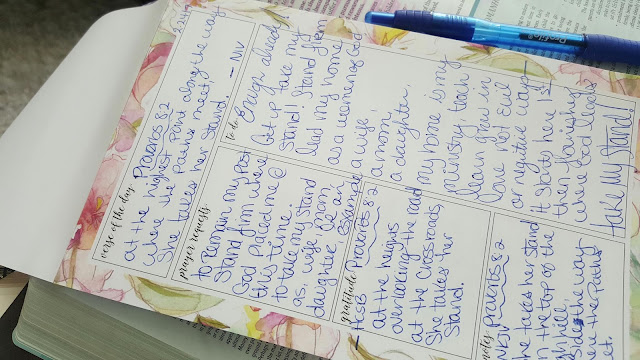 verse of the day
Proverbs 8:2
at the highest point along the way
where the paths meet,
She takes her stand. - NIV
prayer requests
to Remain in my post
Stand firm where
God placed me @
this time.
to take my stand
as, wife, mom
daughter, be an
example
gratitude
Proverbs 8:2
- HCSB
at the heights
overlooking the road
at the crossroads
She takes her
Stand.
to do
Enough already!
Get up take my
stand! Stand firm
lead my home
as a women of God
a wife,
a mom,
a daughter.
my home is my
ministry, lean
learn grow in
love not evil
or negative ways -
it starts here 1st
then flourishes
where God leads
take my stand!
notes
Proverbs 8:2
NKJV
She takes her stand
on the top of the
high hill,
beside the way
where the paths
meet.
Profile